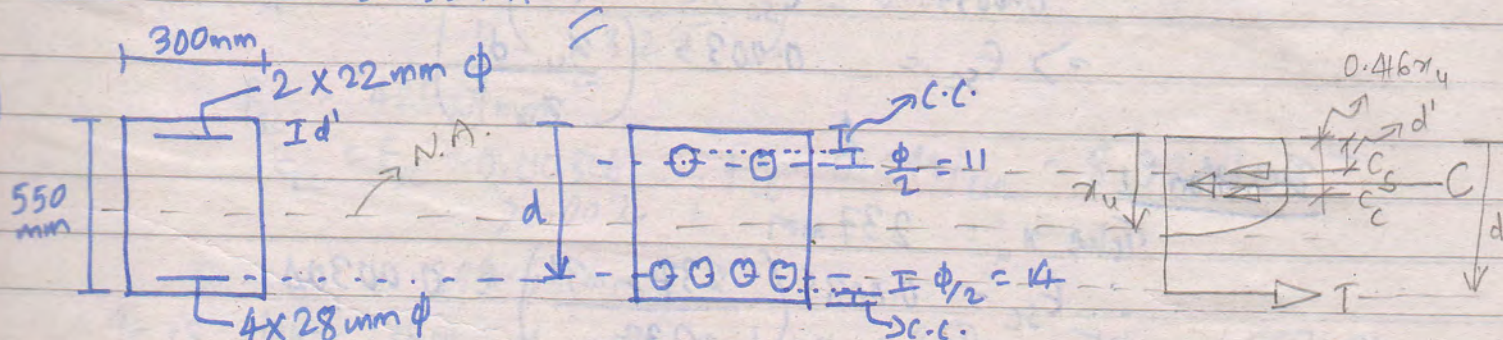 300mm
2 X 22mm ϕ
I d'
N.A.
550
mm
4 X 28mm ϕ
C.C.
ϕ/2 = 11
d
ϕ/2 = 14
C.C.
0.416xu
d'
xu
Cs
C
Cc
d
T